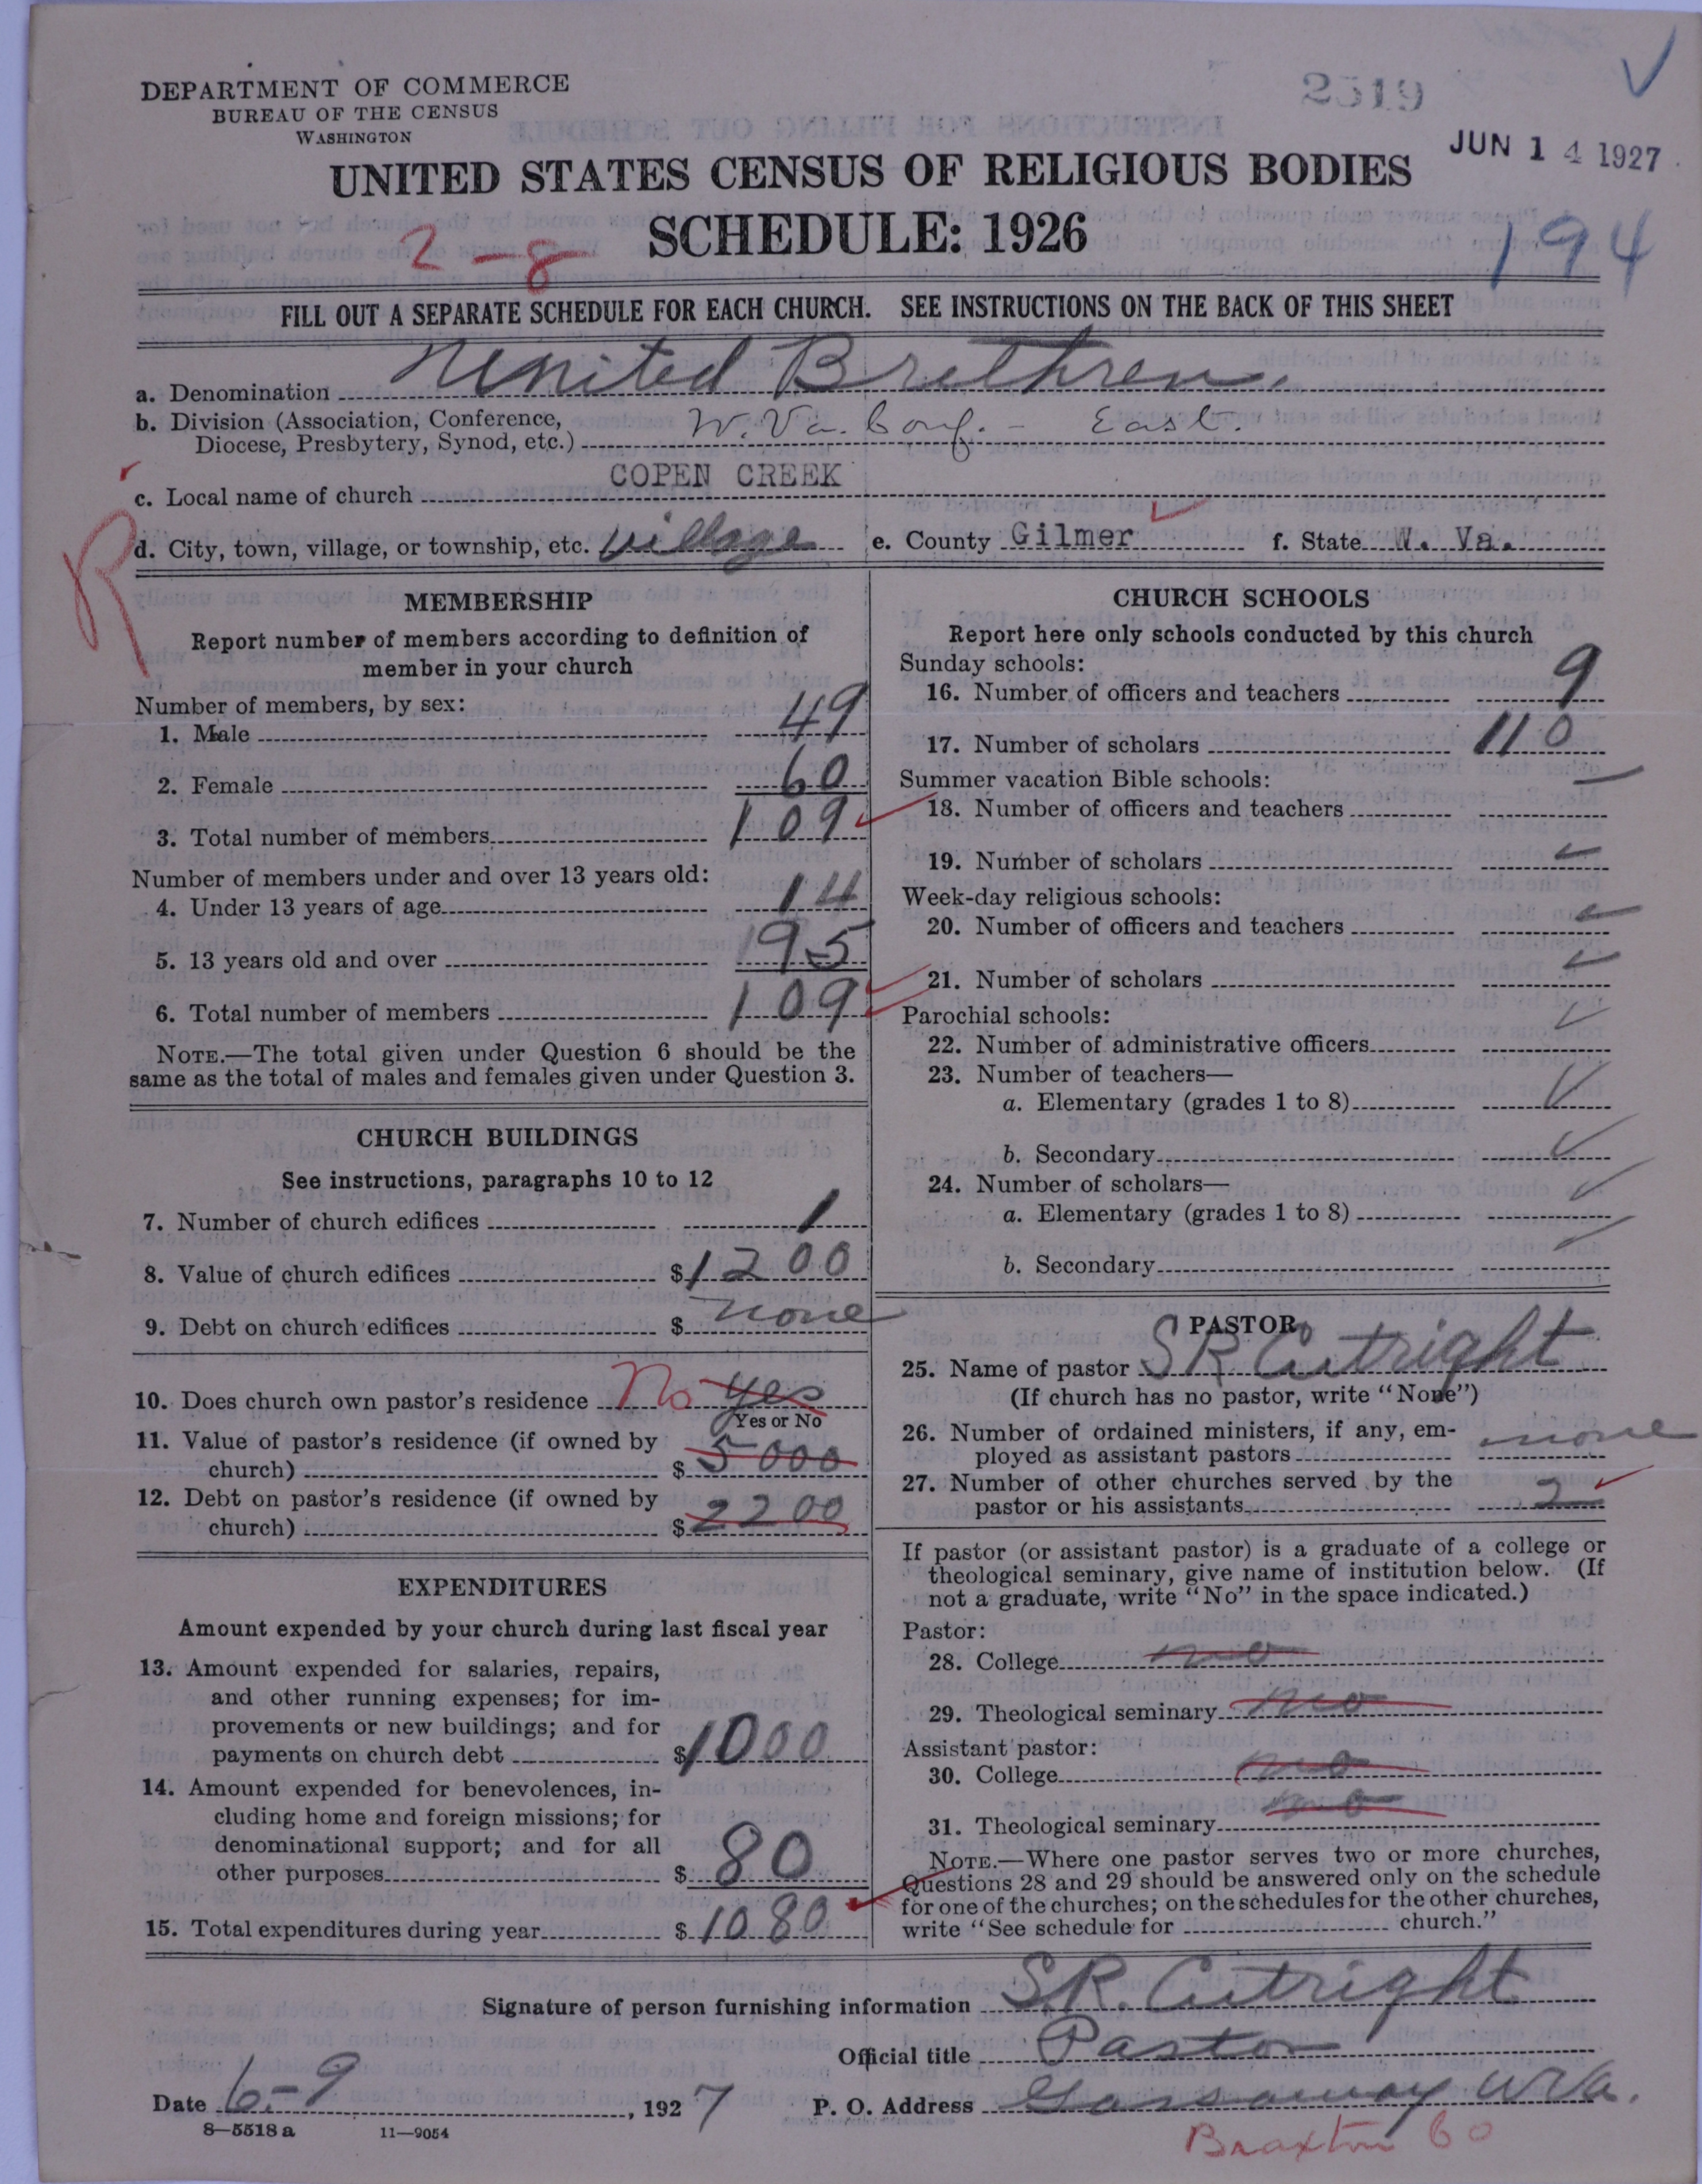 DEPARTMENT OF COMMERCE
BUREAU OF THE CENSUS
WASHINGTON
2519
JUN 14 1927
UNITED STATES CENSUS OF RELIGIOUS BODIES
SCHEDULE: 1926
2-8
194
FILL OUT A SEPARATE SCHEDULE FOR EACH CHURCH. SEE INSTRUCTIONS ON THE BACK OF THIS SHEET
a. Denomination United Brethren
b. Division (Association, Conference,
Diocese, Presbytery, Synod, etc.) W. Va. Conf. - East.
c. Local name of church COPEN CREEK
R
d. City, town, village, or township, etc. village e. County Gilmer f. State W. Va.
MEMBERSHIP
Report number of members according to definition of
member in your church
Number of members, by sex:
1. Male 49
2. Female 60
3. Total number of members 109
Number of members under and over 13 years old:
4. Under 13 years of age 14
5. 13 years old and over 95
6. Total number of members 109
NOTE.—The total given under Question 6 should be the
same as the total of males and females given under Question 3.
CHURCH BUILDINGS
See instructions, paragraphs 10 to 12
7. Number of church edifices 1
8. Value of church edifices $1200
9. Debt on church edifices $ none
10. Does church own pastor's residence No yes
Yes or No
11. Value of pastor's residence (if owned by
church) $ 5000
12. Debt on pastor's residence (if owned by
church) $ 2200
EXPENDITURES
Amount expended by your church during last fiscal year
13. Amount expended for salaries, repairs,
and other running expenses; for im-
provements or new buildings; and for
payments on church debt $1000
14. Amount expended for benevolences, in-
cluding home and foreign missions; for
denominational support; and for all
other purposes $ 80
15. Total expenditures during year $ 1080
CHURCH SCHOOLS
Report here only schools conducted by this church
Sunday schools:
16. Number of officers and teachers 9
17. Number of scholars 110
Summer vacation Bible schools:
18. Number of officers and teachers
19. Number of scholars
Week-day religious schools:
20. Number of officers and teachers
21. Number of scholars
Parochial schools:
22. Number of administrative officers
23. Number of teachers—
a. Elementary (grades 1 to 8)
b. Secondary
24. Number of scholars—
a. Elementary (grades 1 to 8)
b. Secondary
PASTOR
25. Name of pastor S R Cutright
(If church has no pastor, write "None")
26. Number of ordained ministers, if any, em-
ployed as assistant pastors none
27. Number of other churches served by the
pastor or his assistants 2
If pastor (or assistant pastor) is a graduate of a college or
theological seminary, give name of institution below. (If
not a graduate, write "No" in the space indicated.)
Pastor:
28. College no
29. Theological seminary no
Assistant pastor:
30. College no
31. Theological seminary no
NOTE.—Where one pastor serves two or more churches,
Questions 28 and 29 should be answered only on the schedule
for one of the churches; on the schedules for the other churches,
write "See schedule for church."
Signature of person furnishing information S.R. Cutright
Official title Pastor
Date 6-9, 1927 P. O. Address Gassaway W Va.
8—5518 a 11—9054
Braxton Co